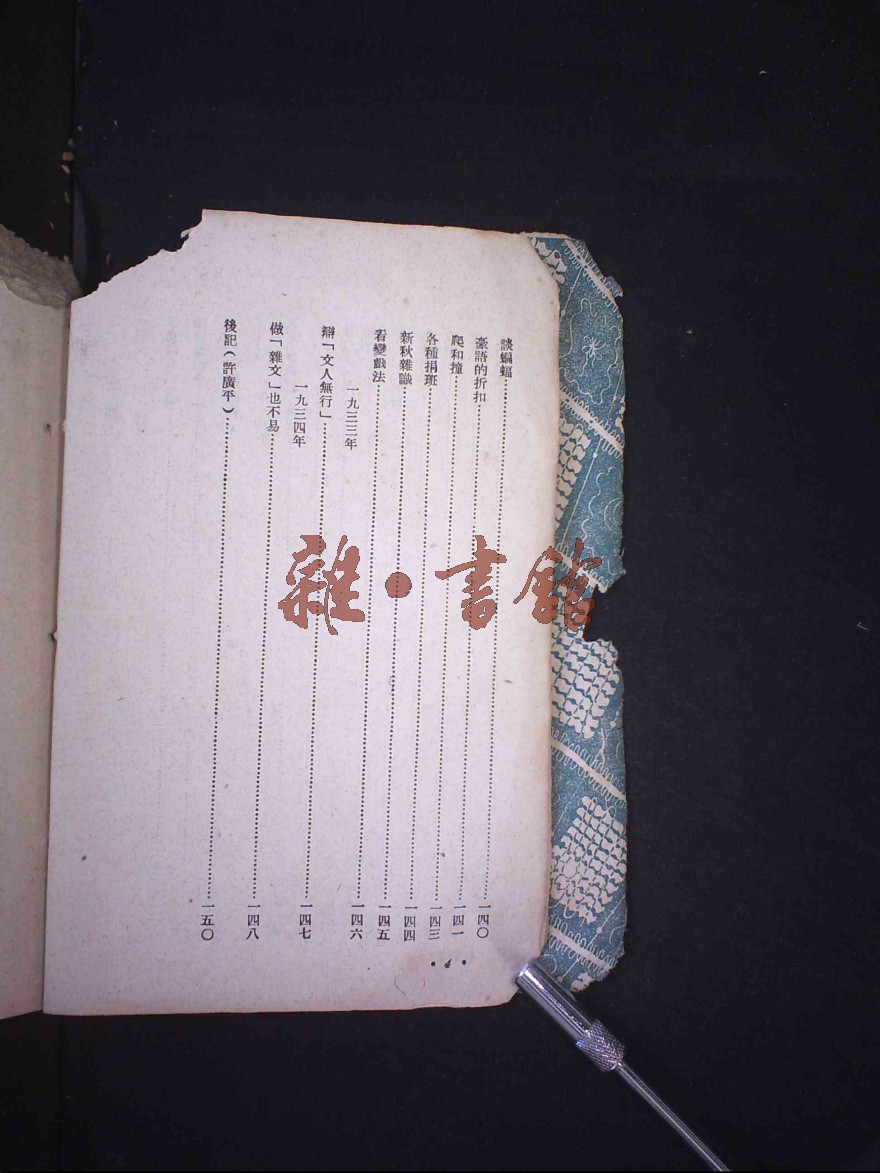 談蝙蝠……一四〇
豪語的折扣……一四一
爬和撞……一四三
各種捐班……一四四
新秋雜識……一四五
看變戲法……一四六
一九三三年
辯「文人無行」……一四七
一九三四年
做「雜文」也不易……一四八
後記（許廣平）……一五〇
·4·
雜·書館